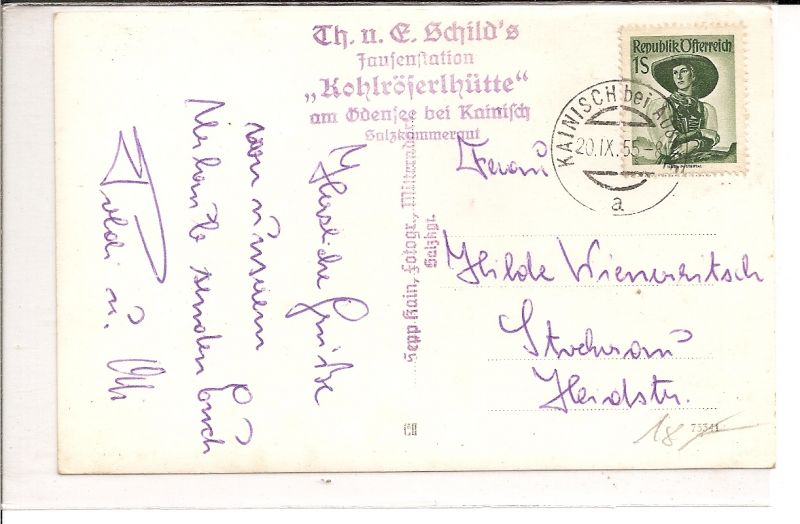 Th. u. E. Schild's
Jausenstation
„Kohlröserlhütte“
am Ödensee bei Kainisch
Salzkammergut
Republik Österreich
1S
KAINISCH bei
20.IX.55-8
a
Herzliche Grüße
von unserem
Urlaub senden Euch
Poldi u.
Sepp Kain, Fotogr., Mitterndorf
Salzkgt.
Frau
Hilde
Stockerau
Heidstr.
18
73341